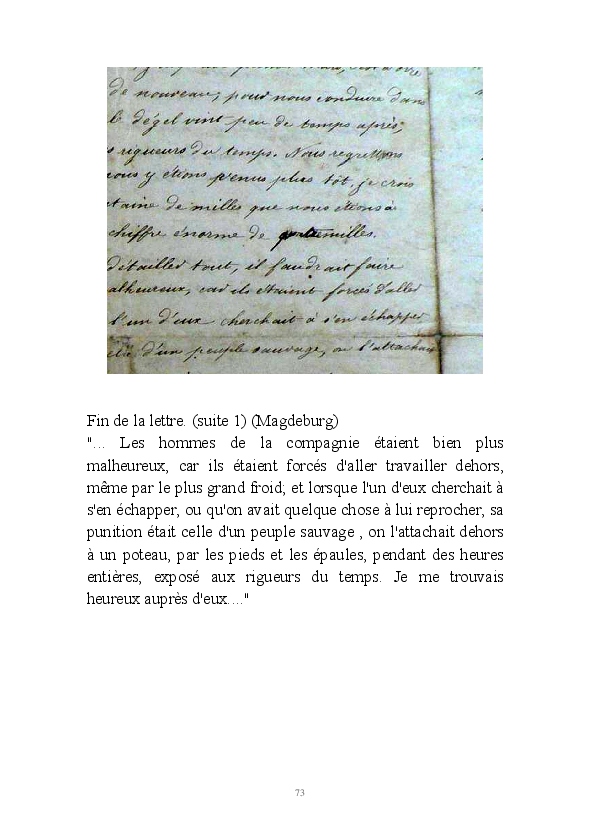 de nouveau, pour nous conduire dans
le dégel vint peu de temps après,
s rigueurs du temps. Nous regrettions
nous y étions venus plus tôt, je crois
taine de milles que nous étions à
chiffre énorme de milles.
détailler tout, il faudrait faire
alheureux, car ils étaient forcés d'aller
l'un d'eux cherchait à s'en échapper
elle d'un peuple sauvage, on l'attachait
Fin de la lettre. (suite 1) (Magdeburg)
"... Les hommes de la compagnie étaient bien plus
malheureux, car ils étaient forcés d'aller travailler dehors,
même par le plus grand froid; et lorsque l'un d'eux cherchait à
s'en échapper, ou qu'on avait quelque chose à lui reprocher, sa
punition était celle d'un peuple sauvage , on l'attachait dehors
à un poteau, par les pieds et les épaules, pendant des heures
entières, exposé aux rigueurs du temps. Je me trouvais
heureux auprès d'eux...."
73